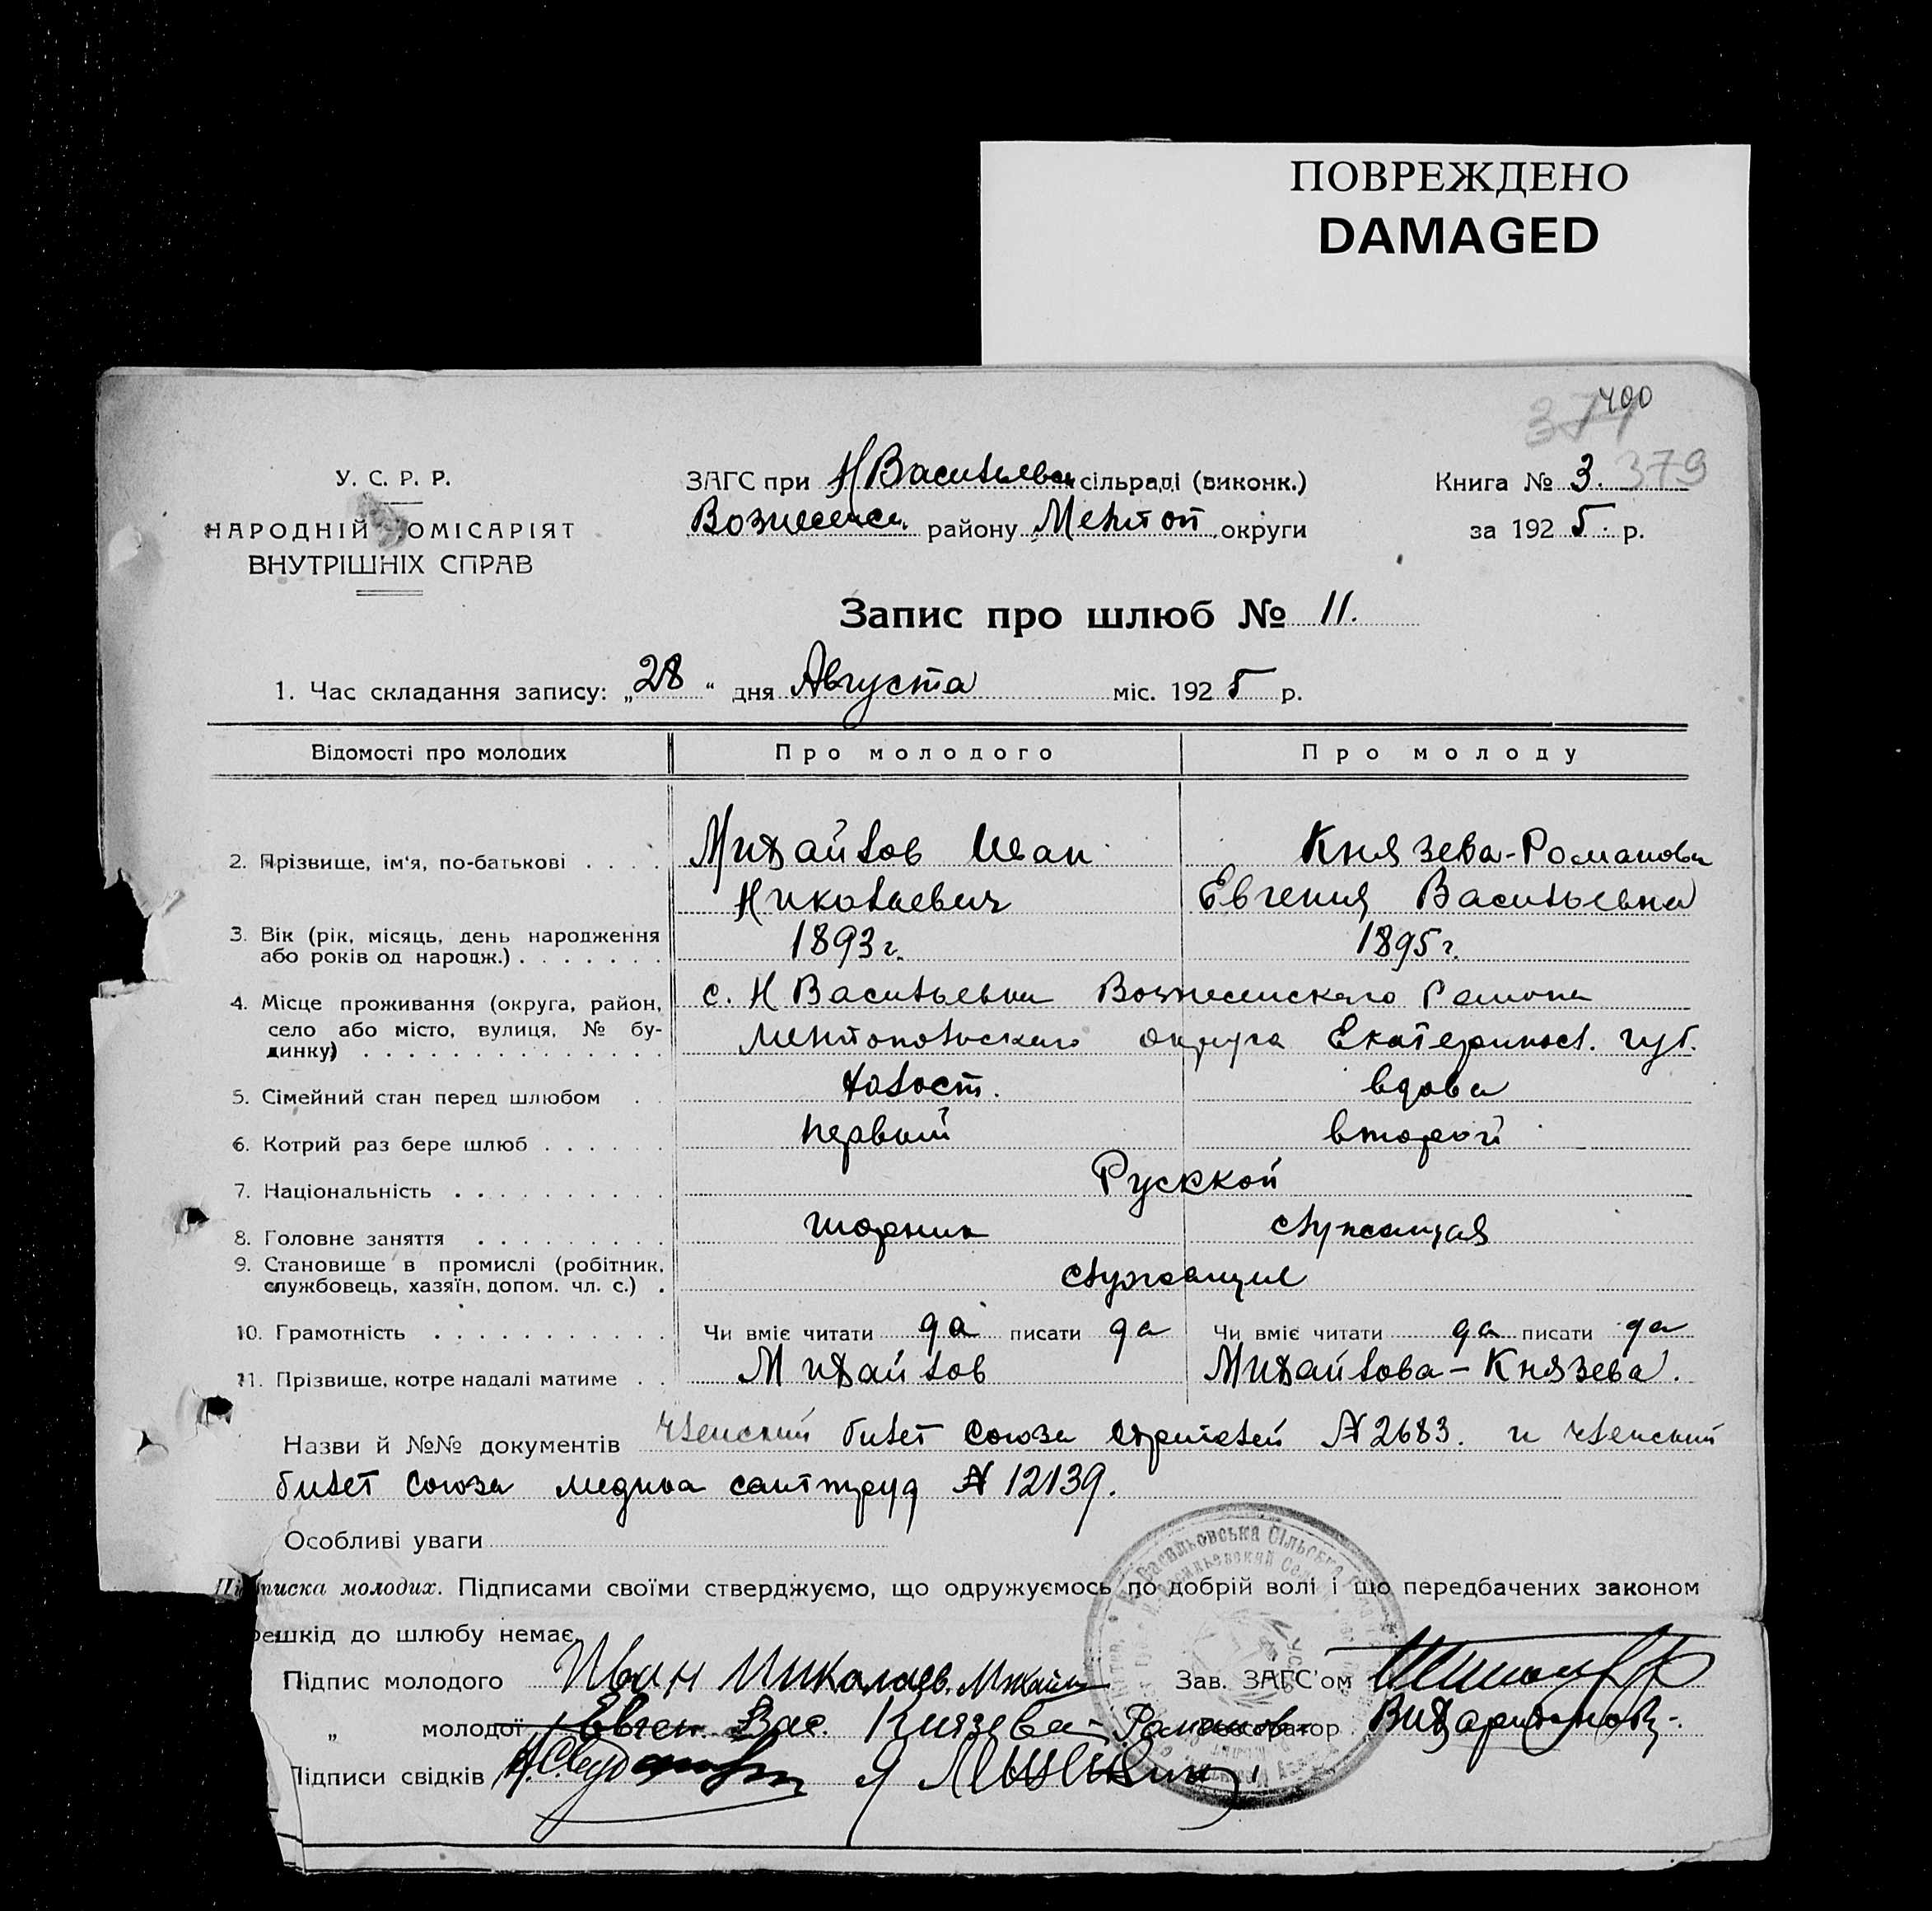 ПОВРЕЖДЕНО
DAMAGED
400
371
379
У. С. Р. Р.
НАРОДНІЙ КОМІСАРІЯТ
ВНУТРІШНІХ СПРАВ
ЗАГС при Н Васильевск сільраді (виконк.)
Вознесенск. району Мелитоп округи
Книга № 3.
за 1925 р.
Запис про шлюб № 11.
1. Час складання запису: „28“ дня Августа міс. 1925 р.
Відомості про молодих Про молодого Про молоду
2. Прізвище, ім'я, по-батькові . . . . Михайлов Иван Князева-Романова
Николаевич Евгения Васильевна
3. Вік (рік, місяць, день народження
або років од народж.) . . . . . . . 1893 г. 1895 г.
4. Місце проживання (округа, район, с. Н Васильевка Вознесенского Района
село або місто, вулиця, № бу-
динку) . . . . . . . . . . . . . . Мелитопольского округа Екатериносл. губ.
5. Сімейний стан перед шлюбом . . холост. вдова
6. Котрий раз бере шлюб . . . . . . первый второй
7. Національність . . . . . . . . . . Русккой
8. Головне заняття . . . . . . . . . шорник служащая
9. Становище в промислі (робітник,
службовець, хазяїн, допом. чл. с.) . служащие
10. Грамотність . . . . . . . . . . . Чи вміє читати да писати да Чи вміє читати да писати да
11. Прізвище, котре надалі матиме . . Михайлов Михайлова-Князева.
Назви й №№ документів Членский билет Союза №2683. и членский
билет Союза №12139.
Особливі уваги
Підписка молодих. Підписами своїми стверджуємо, що одружуємось по добрій волі і що передбачених законом
решкід до шлюбу немає.
Підпис молодого Иван Николаев. Михайл Зав. ЗАГС'ом
„ молодої Евген. Вас. Князева-Романова
Підписи свідків